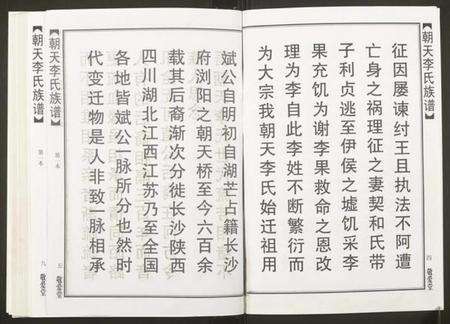 【朝天李氏族谱】
征因屡谏纣王且执法不阿遭
亡身之祸理征之妻契和氏带
子利贞逃至伊侯之墟饥采李
果充饥为谢李果救命之恩改
理为李自此李姓不断繁衍而
为大宗我朝天李氏始迁祖用
四
敬爱堂
斌公自明初自湖芒占籍长沙
府浏阳之朝天桥至今六百余
载其后裔渐次分徙长沙陕西
四川湖北江西江苏乃至全国
各地皆斌公一脉所分也然时
代变迁物是人非致一脉相承
【朝天李氏族谱】
第一本
五
敬爱堂
【朝天李氏族谱】
第一本
九